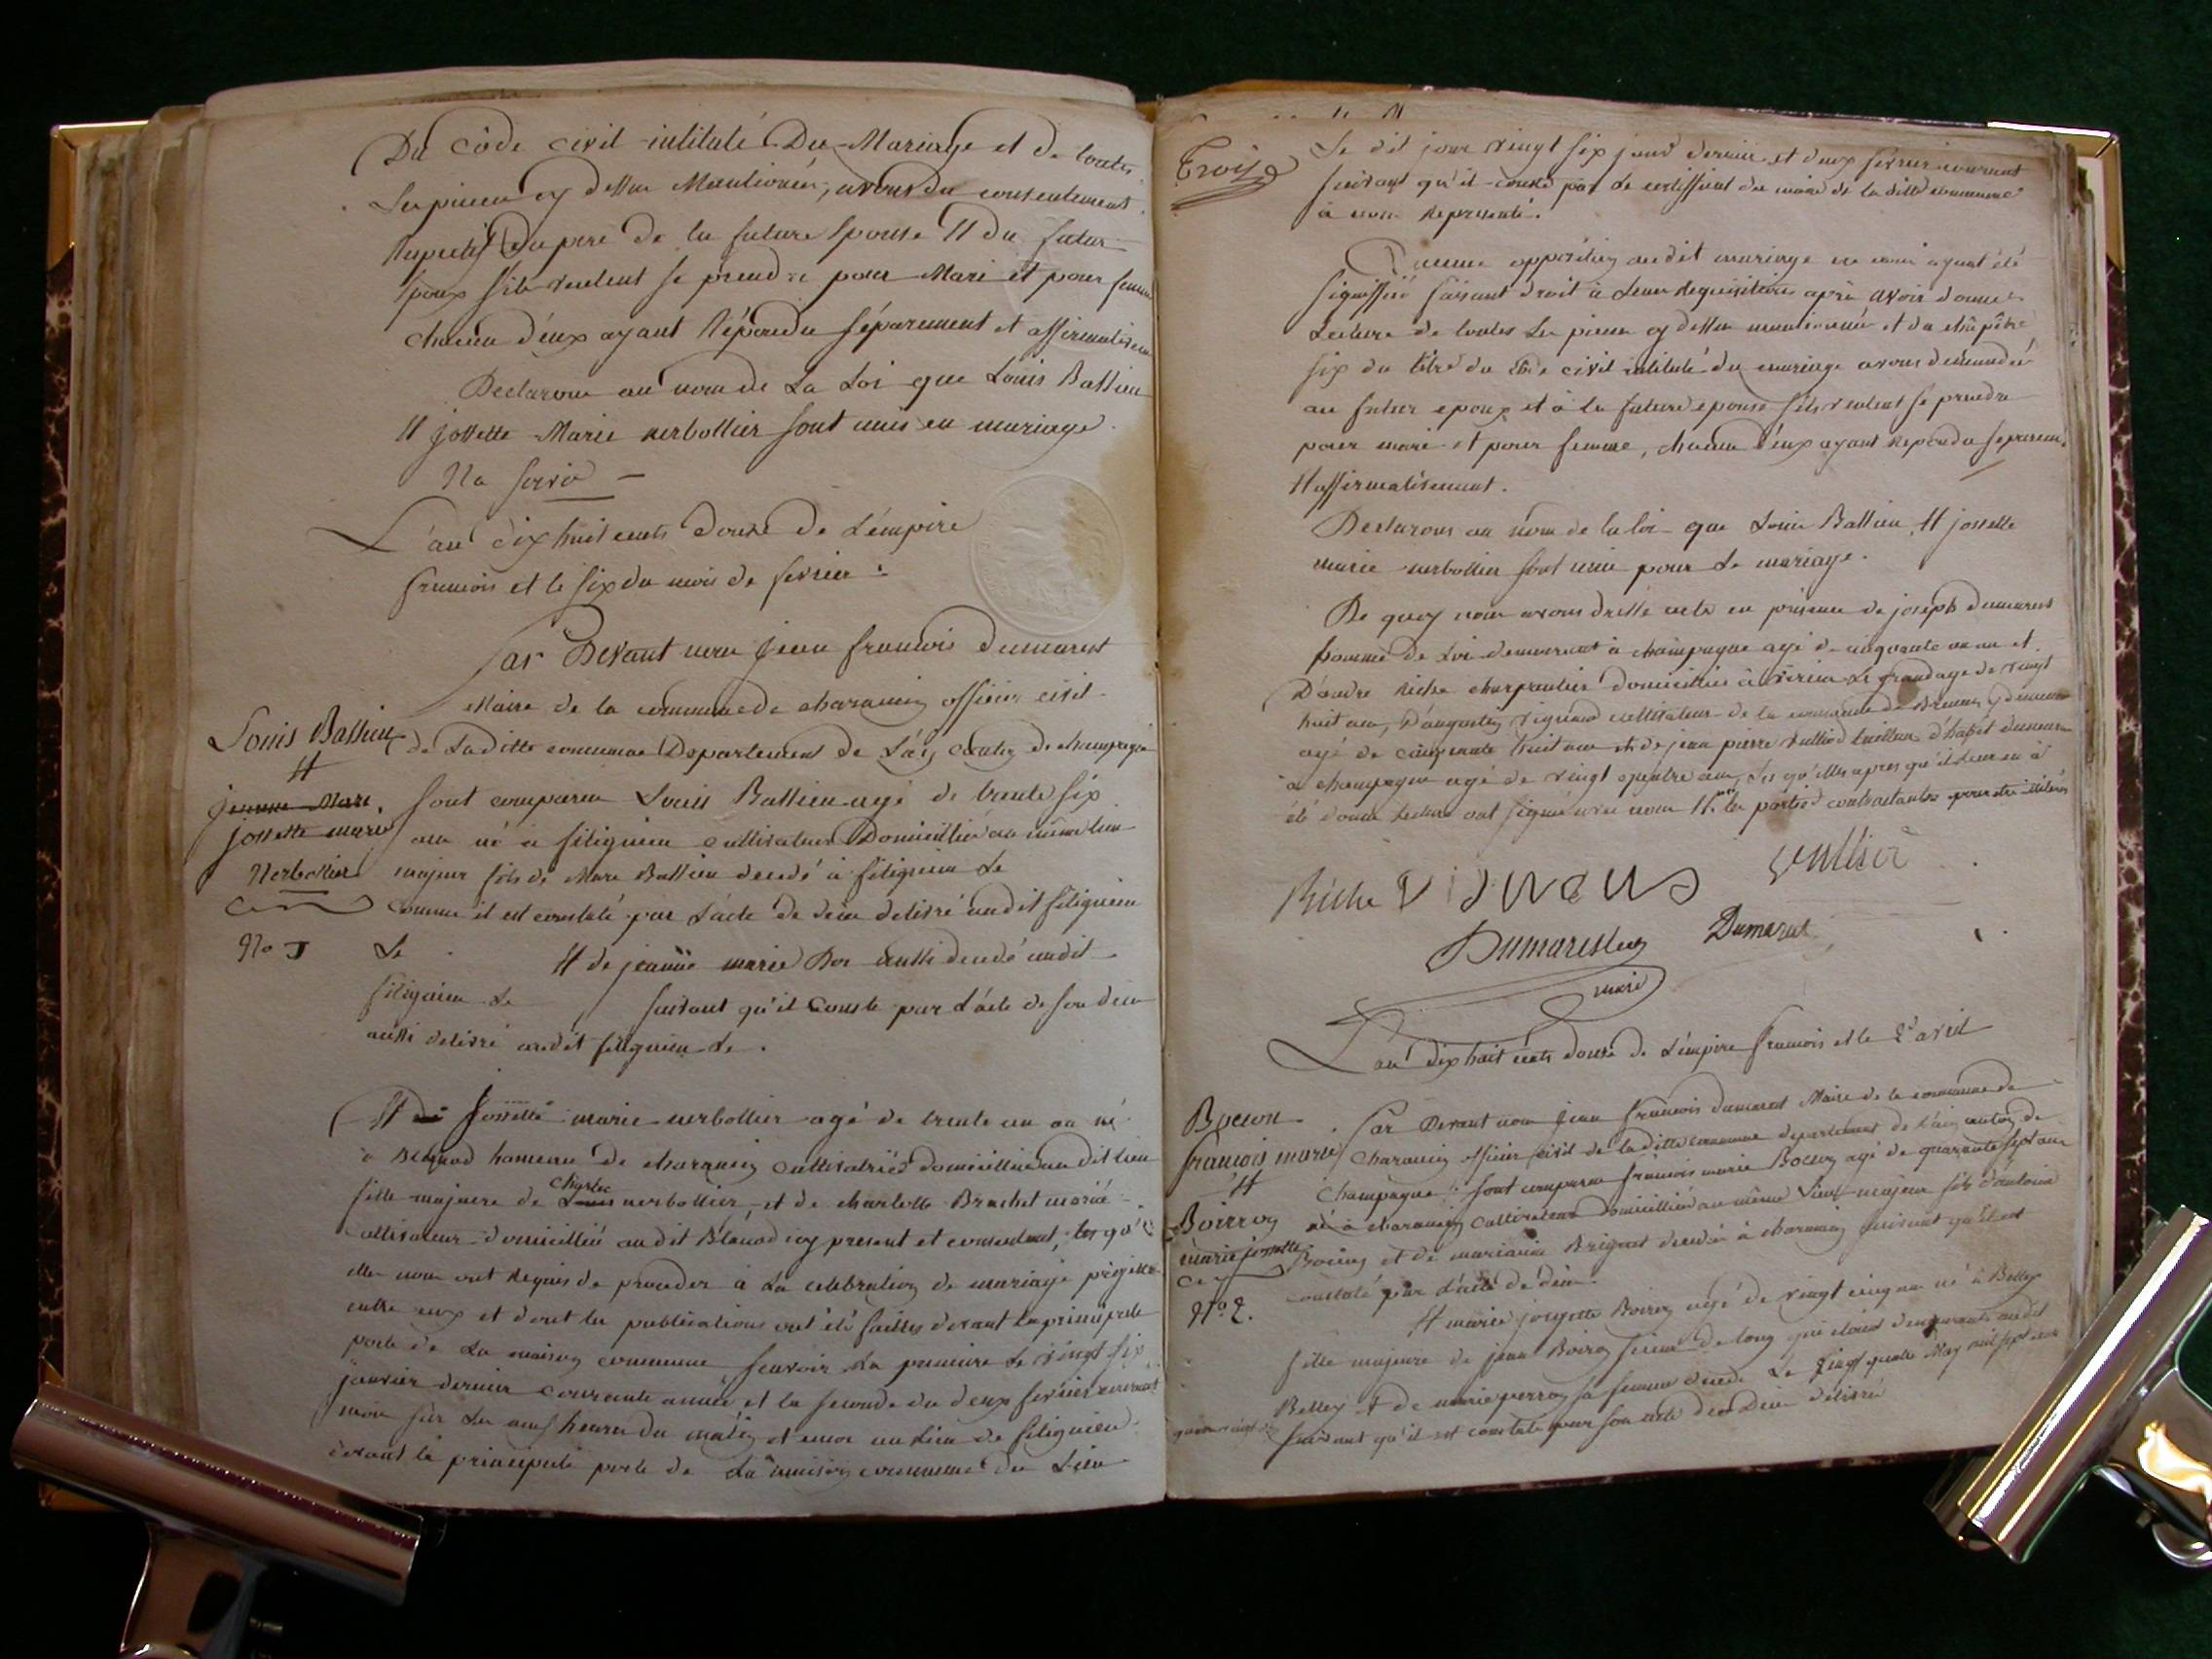 Du Côde civil intitulé Du Mariage et de toutes
Les pieces cy dessus Mentionnées, avons du consentement
Respectif du pere de la future Epouse Et du futur
Epoux s'ils veulent se prendre pour Mari et pour femme
chacun d'eux ayant Répondu séparement et affirmativem
Declarons au nom de La Loi que Louis Bassieu
Et Josette Marie nerbollier sont unis en mariage.
L'an dix huit cents douze de L'émpire
francois et le six du mois de fevrier
Par Devant nous Jean francois dumarest
Maire de la commune de charancin officier civil
Louis Bassieu
Et
Jeanne Marie
Josette marie
Nerbollier
No 1
de Laditte commune Departement de L'ain Canton de champagne
sont comparus Louis Bassieu agé de trente six
ans né a sitignieu cultivateur Domicillié au même lieu
majeur fils de Marc Bassieu decedé à sitignieu Le
comme il est constaté par L'acte de deces delivré audit sitignieu
Le Et de jeanne marie aussi decedé audit
sitignieu Le suivant qu'il Conste par L'acte de son deces
aussi delivré audit sitignieu Le .
Et de Josette marie nerbollier agé de trente un an né
à hameau de charancin cultivatrice domicilliée au dit lieu
fille majeure de Louis Charles nerbollier et de charlotte Brachet marié
cultivateur domicillié au dit icy present et consentant, les qu'
elles nous ont Requis de proceder à La celebration de mariage projetté
entre eux et dont les publications ont été faittes devant la principale
porte de La maison commune scavoir La premiere Le vingt six
janvier dernier courante année et la seconde du deux fevrier courant
mois sur Les neuf heures du matin et encor au Lieu de sitignieu
devant la principale porte de La maison commune du Lieu
Trois
Le dit jour vingt six janvr dernier et deux fevrier courant
suivant qu'il conste par Le certifficat du maire de la ditte commune
à nous Representé.
aucune opposition audit mariage ne nous ayant été
signiffié faisant droit à Leur Requisitoire après avoir donné
Lecture de toutes Les pieces cy dessus mentionnée et du châpitre
six du titre du code civil intitulé du mariage avons demandé
au futur epoux et à la future epouse s'ils veulent se prendre
pour mari et pour femme, chacun d'eux ayant Repondu separem.
Et affirmativement.
Declarons au nom de la loi que Louis Bassieu Et josette
marie nerbollier sont unis pour Le mariage.
De quoy nous avons dressé acte en présence de joseph dumarest
homme de Loi demeurant à champagne agé de cinquante un an et
D'andre Riche charpentier domicillié à virieu Le grand age de vingt
huit ans, D'augustin vignaud cultivateur de la commune de Brenas y demeurant
agé de cinquante huit ans et de jean pierre tailleur d'habit demeurant
à champagne agé de vingt quatre ans, Les qu'elles apres qu'il Leur en à
été donné Lecture ont signé avec nous Et non les parties contractantes pour être illiteré
Riche
Dumarest
Dumarest
maire
L'an dix huit cents douze de L'émpire francois et le 2d avril
Bocson
francois marie
Et
Boirroy
marie josette
No 2.
Par Devant nous Jean francois dumarest Maire de la commune de
Charancin officier civil de la ditte commune departement de L'ain canton de
Champagne : sont comparus francois marie agé de quarante sept ans
né à charancin cultivateur domicillié au même Lieu majeur fils d'antoine
et de Brignet decedé à charancin suivant qu'il est
constaté par L'acte de deces.
Et marie josette agé de vingt cinq ans né à Belley
fille majeure de jean demeurant audit
Belley Et de marie perroy sa femme decedé Le vingt quatre May mil sept cent
suivant qu'il est constaté par son acte de Deces délivré